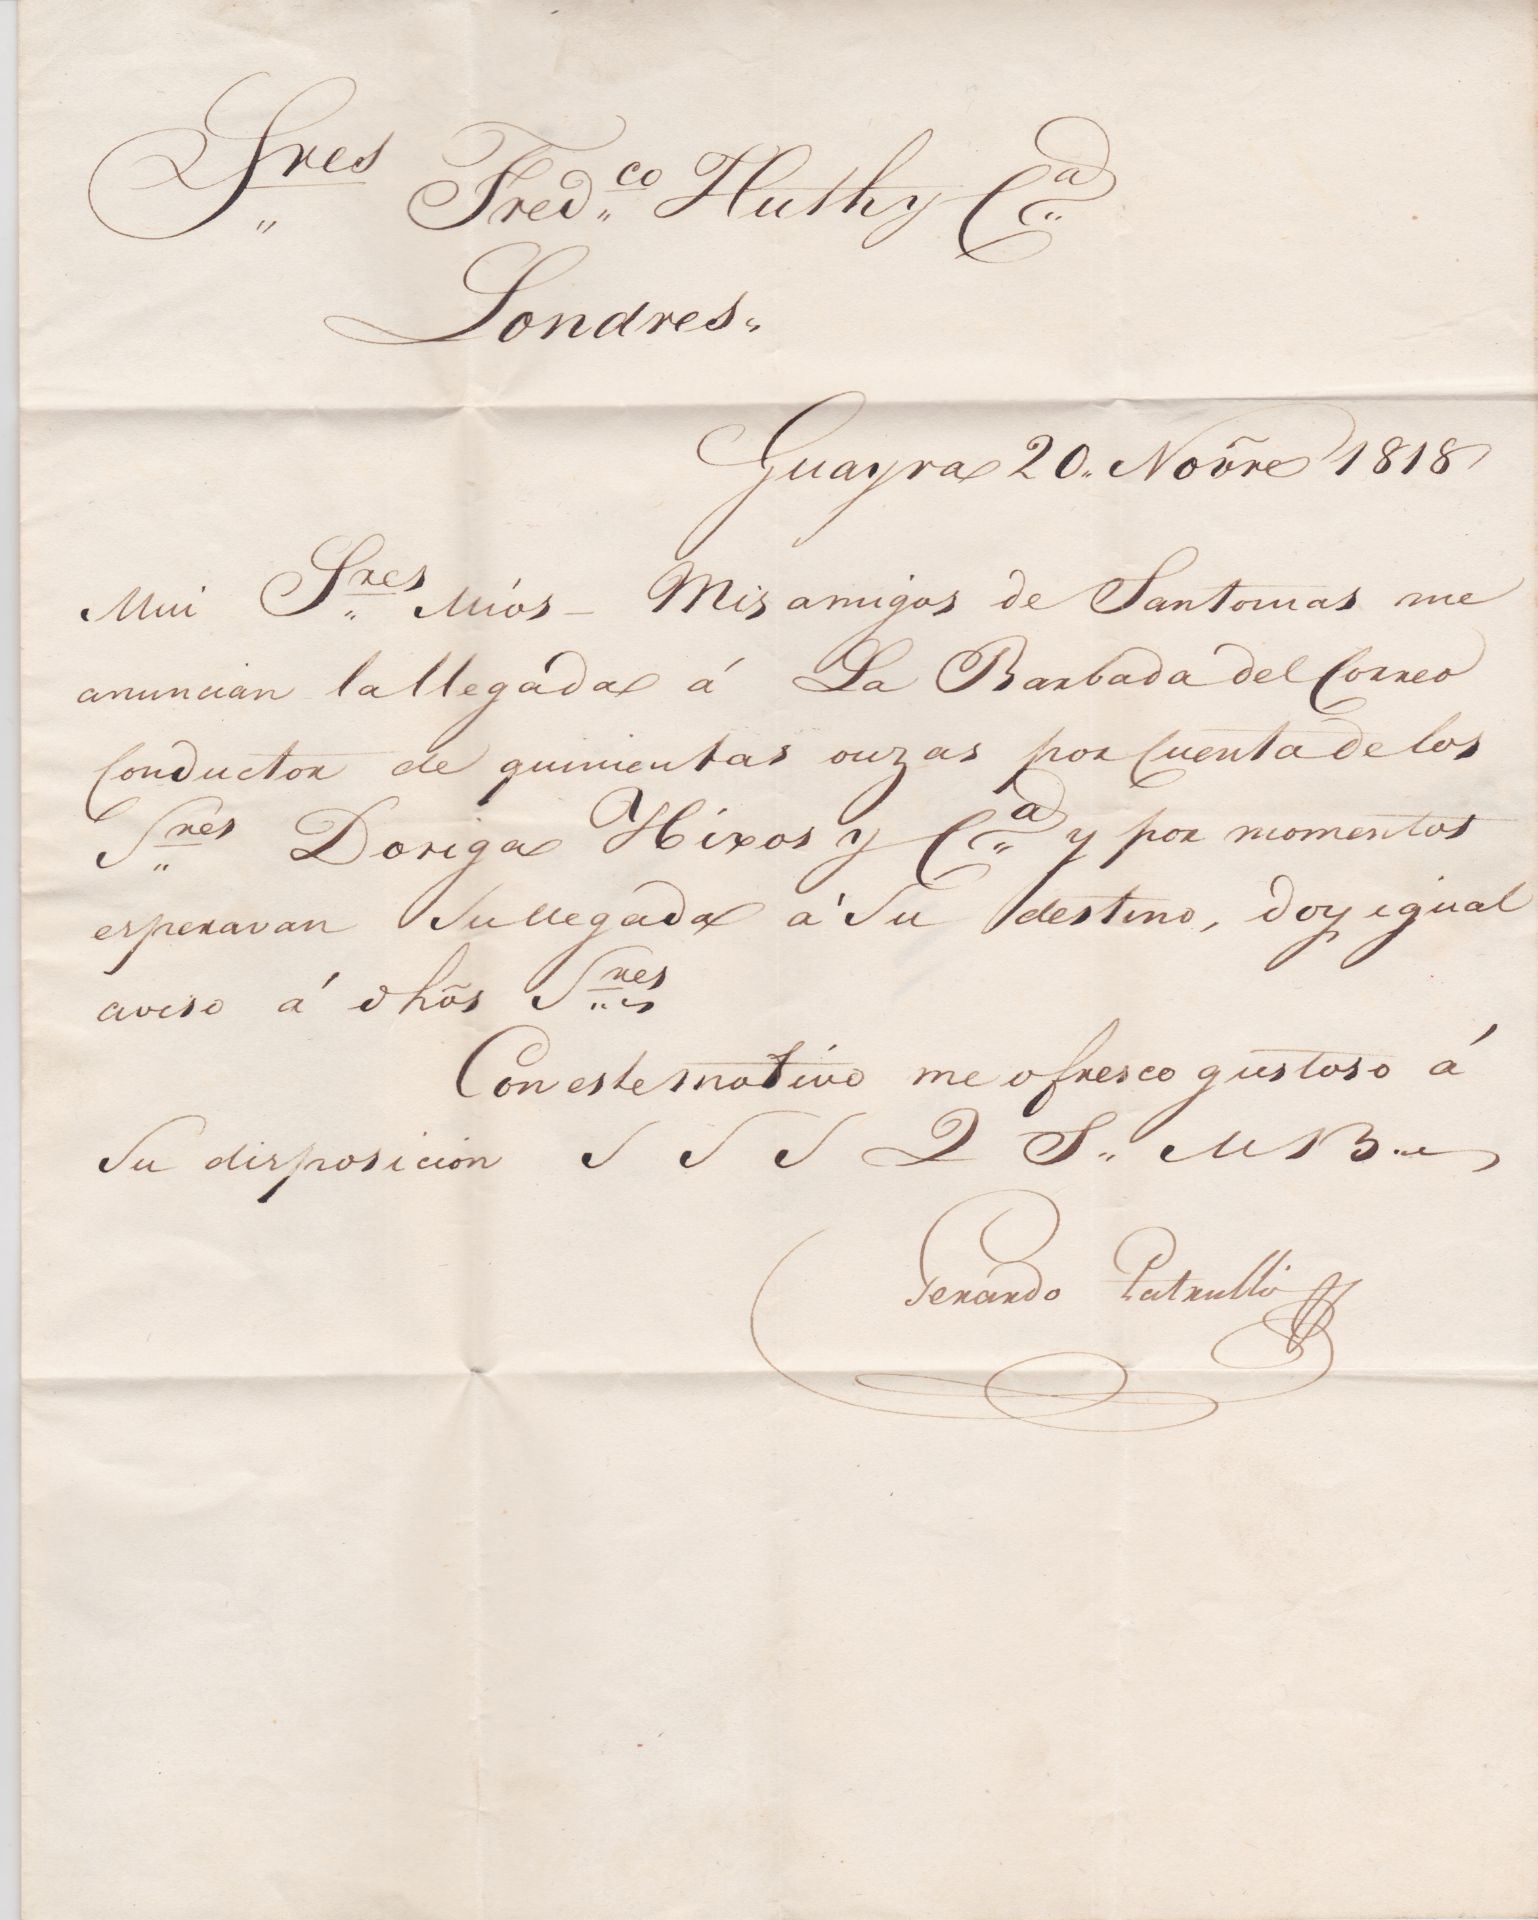 Sres Fred.co Huth y Ca
Londres.
Guayra 20. Novre 1818
Mui Sres Mios - Mis amigos de Santomas me
anuncian la llegada á La Barbada del Correo
Conductor de quinientas onzas por Cuenta de los
Sres Doriga Hixos y Ca y por momentos
esperavan Su llegada á Su destino, doy igual
aviso á dhõs Sres
Con este motivo me ofresco gustoso á
Su disposicion S S S Q S. M B.
Gerardo Patrullo